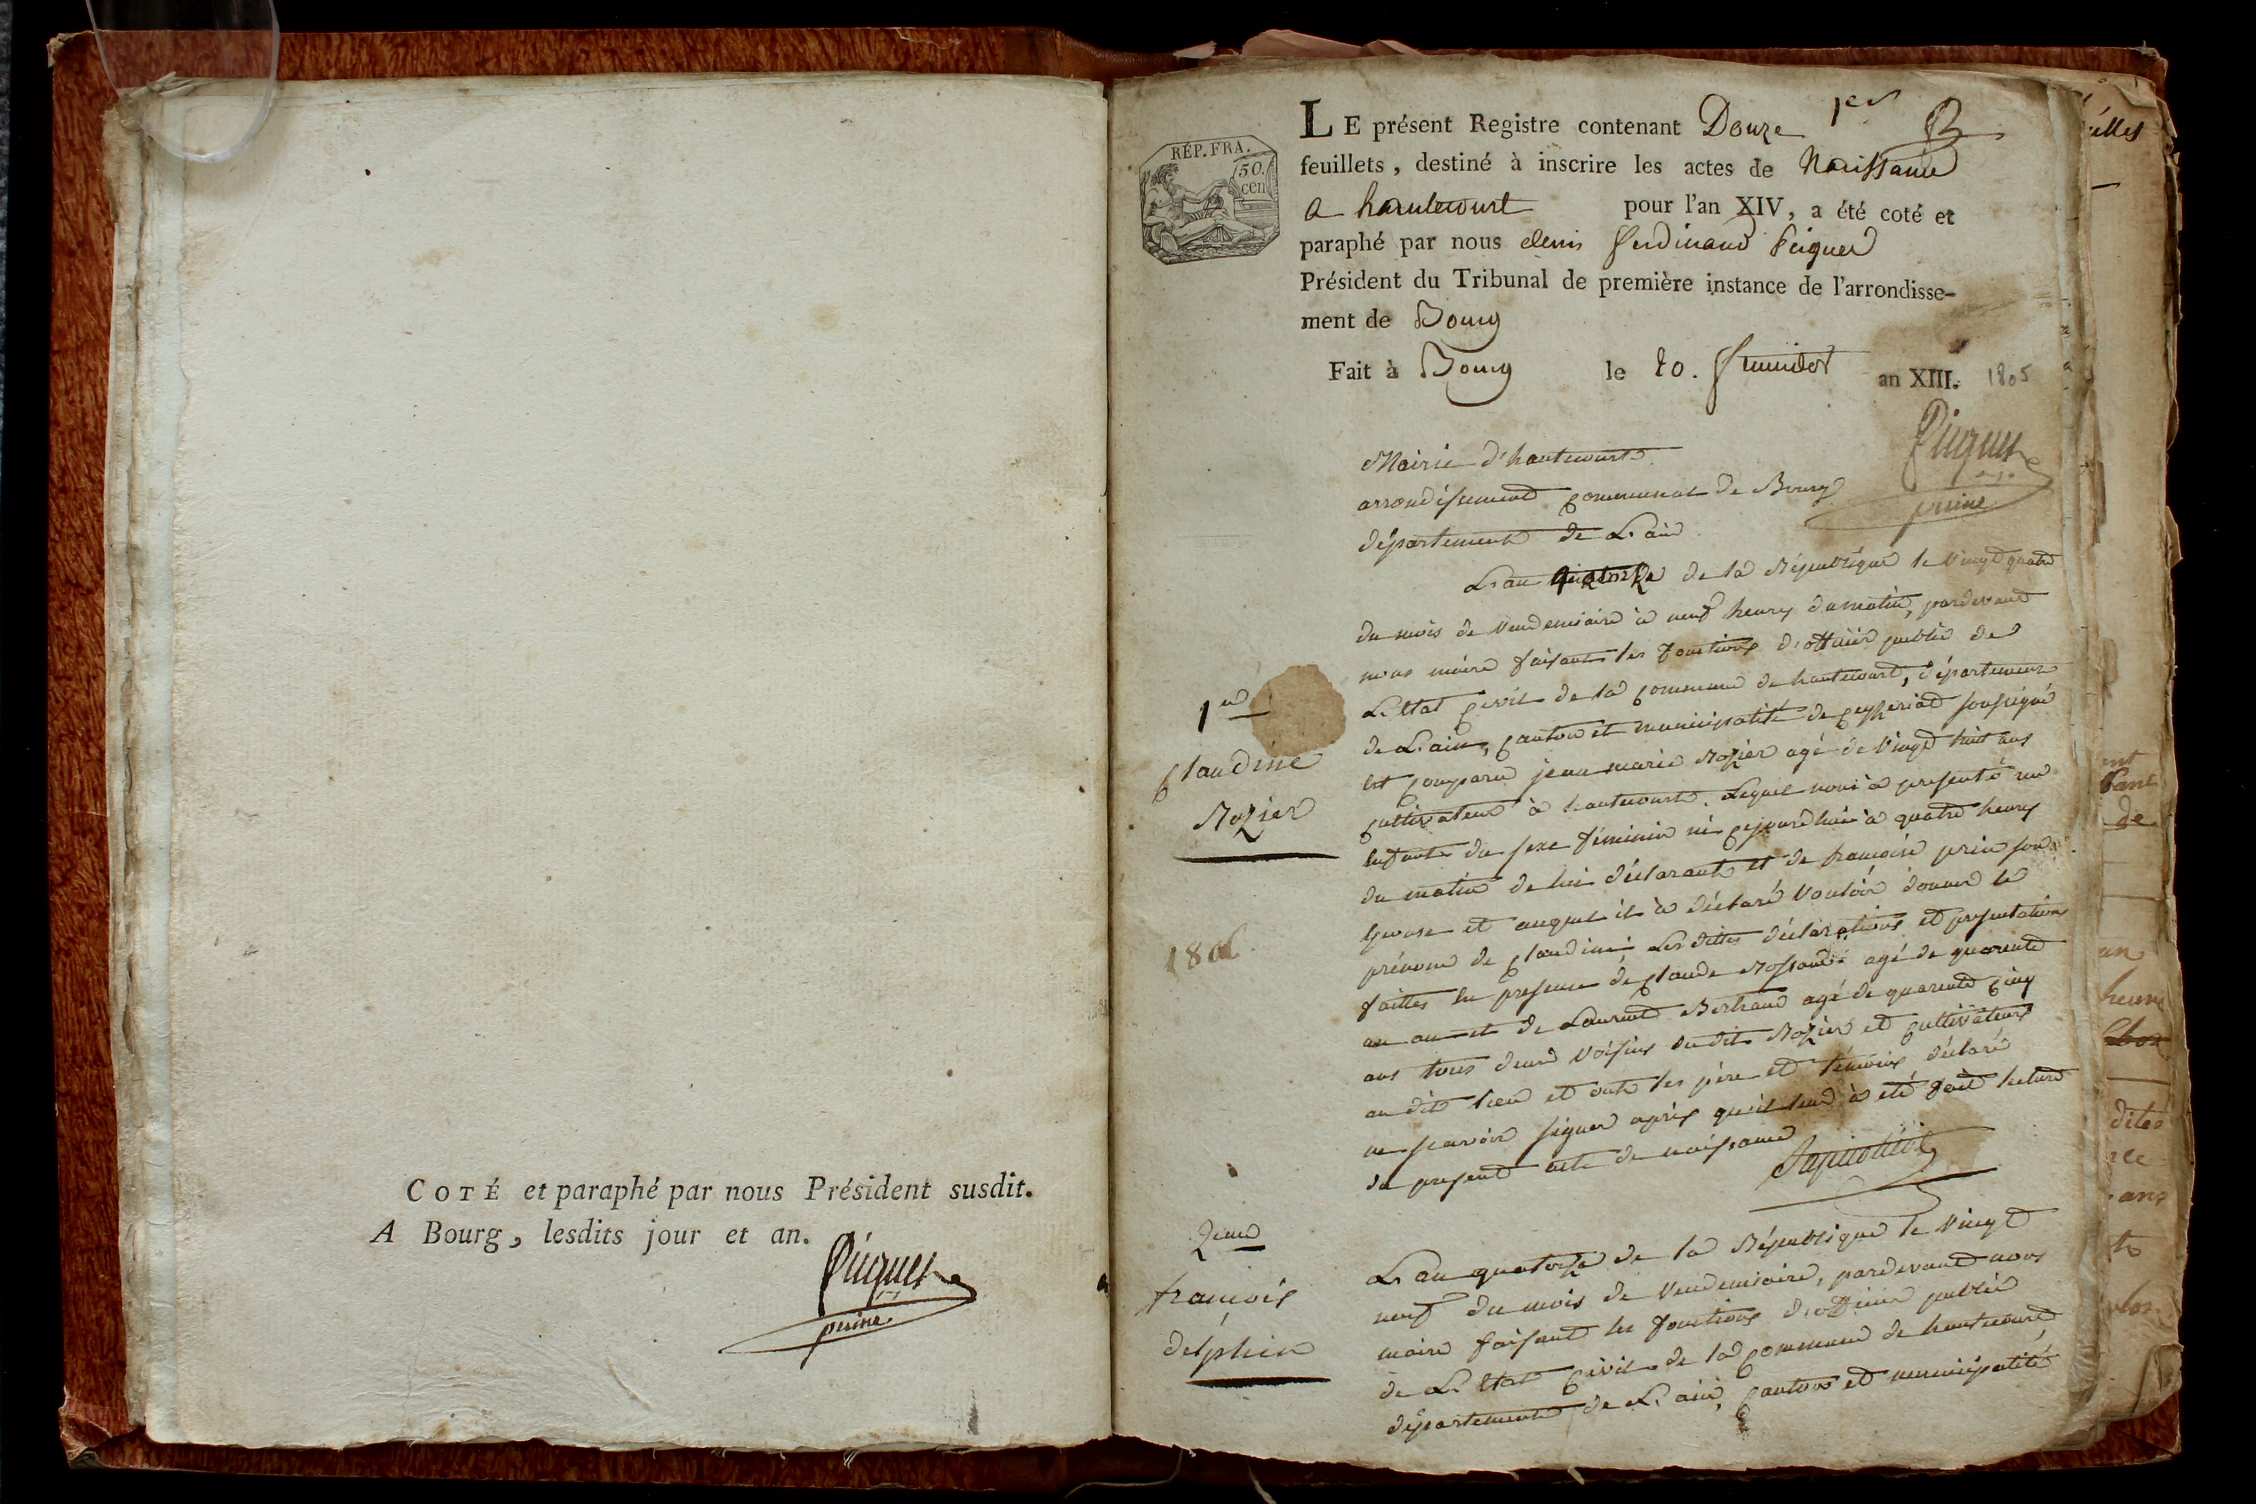 COTÉ et paraphé par nous Président susdit.
A Bourg, lesdits jour et an.
1er
LE présent Registre contenant Douze
feuillets, destiné à inscrire les actes de Naissance
a hautecourt pour l'an XIV, a été coté et
paraphé par nous denis ferdinand
Président du Tribunal de première instance de l'arrondisse-
ment de Bourg
Fait à Bourg le 20. fructidor an XIII. 1805
RÉP. FRA.
50.
cen
Mairie d'hautecourt
arrondissement communal de Bourg
département de L'ain
L'an quatorze de la République le vingt quatre
du mois de vendemiaire à neuf heures du matin, pardevant
nous maire faisant les fonctions d'officier public de
L'Etat civil de la commune de hautecourt, département
de L'ain, canton et municipalité de ceyzeriat soussigné
Est comparu jean marie Rozier agé de vingt huit ans
cultivateur à hautecourt. Lequel nous à presenté un
enfant du sexe féminin né cejourdhui à quatre heures
du matin de lui déclarant et de francoise prin son
Epouse et auquel il à déclaré vouloir donner le
prénom de claudine, Les dittes déclarations et presentations
faittes en presence de claude agé de quarente
un an et de Laurent Bertrand agé de quarente cinq
ans tous deux voisins du dit Rozier et cultivateurs
au dit lieu et ont les père et témoins déclaré
ne scavoir signer après qu'il leur à été fait lecture
du present acte de naissance
1er
claudine
Rozier
2eme
françois
delphin
L'an quatorze de la République le vingt
neuf du mois de vendemiaire, pardevant nous
maire faisant les fonctions d'officier public
de L'Etat civil de la commune de hautecourt
département de L'ain, canton et municipalité